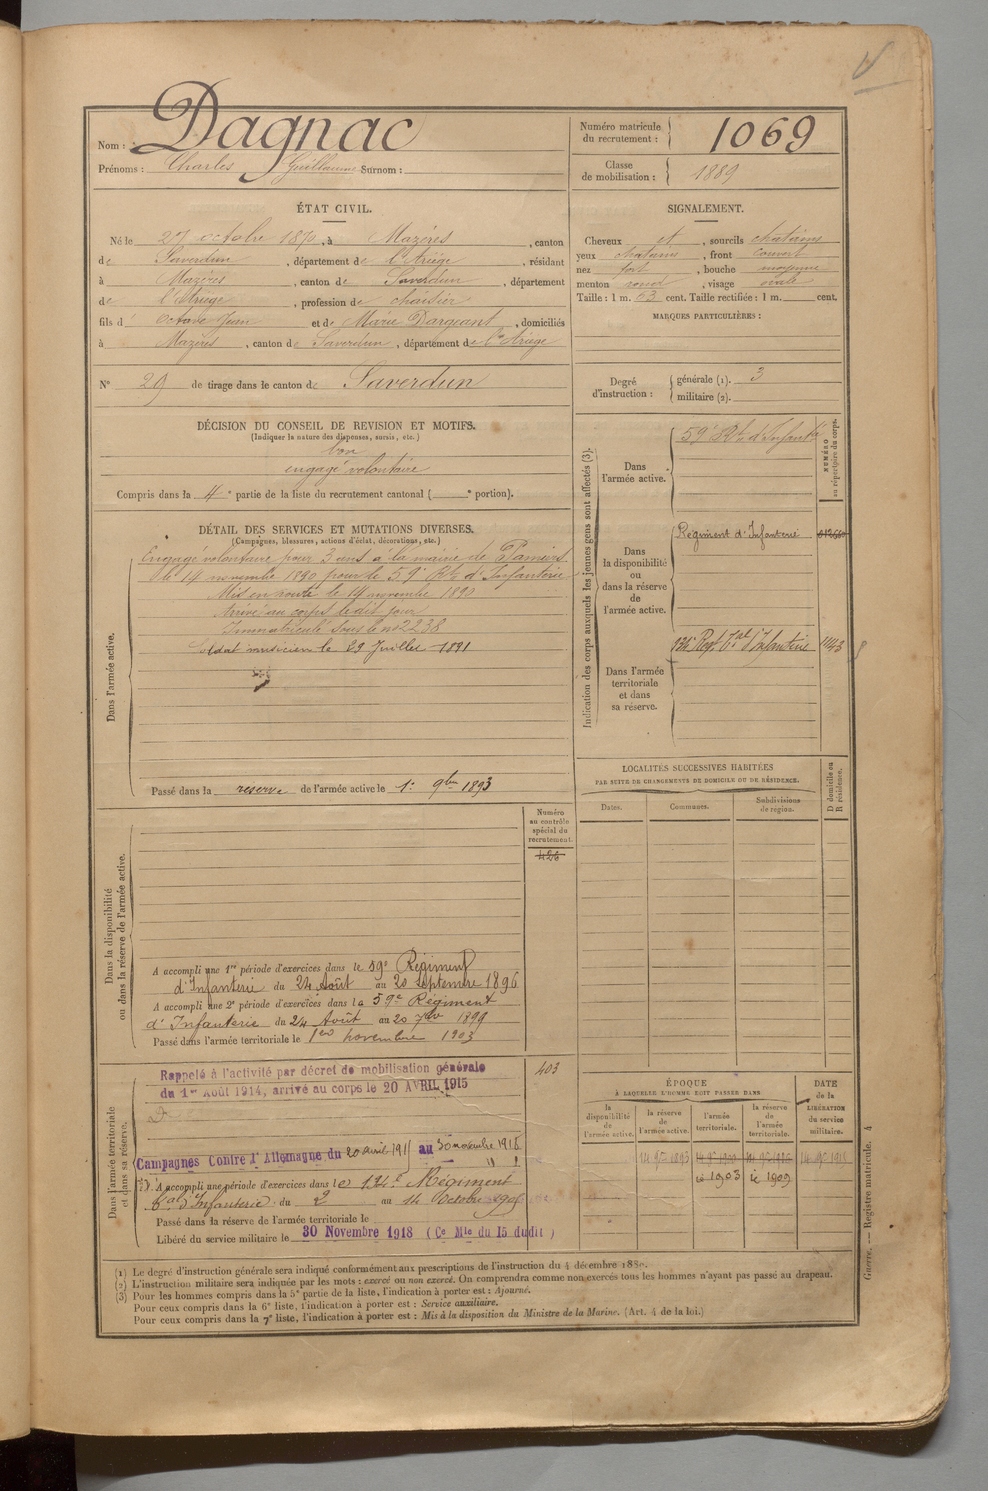 Nom : Dagnac
Prénoms : Charles Guillaume Surnom :
Numéro matricule du recrutement : 1069
Classe de mobilisation : 1889
ÉTAT CIVIL.
Né le 27 octobre 1870, à Mazères, canton
de Saverdun, département de l'Ariège, résidant
à Mazères, canton de Saverdun, département
de l'Ariège, profession de chaisier
fils d' Octave Jean et de Marie Dargeant, domiciliés
à Mazères, canton de Saverdun, département de l'Ariège
N° 29 de tirage dans le canton de Saverdun
SIGNALEMENT.
Cheveux et, sourcils chatains
yeux chatains, front couvert
nez fort, bouche moyenne
menton rond, visage ovale
Taille : 1 m. 63 cent. Taille rectifiée : 1 m. cent.
MARQUES PARTICULIÈRES :
Degré d'instruction : générale (1). 3
militaire (2).
DÉCISION DU CONSEIL DE REVISION ET MOTIFS.
(Indiquer la nature des dispenses, sursis, etc.)
bon
engagé volontaire
Compris dans la 4e partie de la liste du recrutement cantonal ( e portion).
DÉTAIL DES SERVICES ET MUTATIONS DIVERSES.
(Campagnes, blessures, actions d'éclat, décorations, etc.)
Dans l'armée active.
Engagé volontaire pour 3 ans à la mairie de Pamiers
le 14 novembre 1890 pour le 59e Rt d'Infanterie
Mis en route le 14 novembre 1890
Arrivé au corps le dit jour
Immatriculé sous le n° 2238
Soldat musicien le 29 Juillet 1891
Passé dans la reserve de l'armée active le 1er 9bre 1893
Indication des corps auxquels les jeunes gens sont affectés (3).
NUMÉRO au répertoire du corps.
Dans l'armée active.
59e Rt d'Infanterie
Dans la disponibilité ou dans la réserve de l'armée active.
Régiment d'Infanterie
Dans l'armée territoriale et dans sa réserve.
134e Regt Tal d'Infanterie 1143
LOCALITÉS SUCCESSIVES HABITÉES
PAR SUITE DE CHANGEMENTS DE DOMICILE OU DE RÉSIDENCE.
D domicile ou R résidence.
Dates. Communes. Subdivisions de région.
Dans la disponibilité ou dans la réserve de l'armée active.
Numéro au contrôle spécial du recrutement.
426
A accompli une 1re période d'exercices dans le 59e Régiment
d'Infanterie du 24 Août au 20 Septembre 1896
A accompli une 2e période d'exercices dans la 59e Régiment
d'Infanterie du 24 Août au 20 7bre 1899
Passé dans l'armée territoriale le 1er novembre 1903
Dans l'armée territoriale et dans sa réserve.
403
Rappelé à l'activité par décret de mobilisation générale
du 1er Août 1914, arrivé au corps le 20 AVRIL 1915
Campagnes Contre l'Allemagne du 20 avril 1915 au 30 novembre 1918
A accompli une période d'exercices dans le 134e Régiment
Tal d'Infanterie du 2 au 14 Octobre 1905
Passé dans la réserve de l'armée territoriale le
Libéré du service militaire le 30 Novembre 1918 (Ce Mle du 15 dudit)
ÉPOQUE
À LAQUELLE L'HOMME DOIT PASSER DANS
DATE de la LIBÉRATION du service militaire.
la disponibilité de l'armée active.
la réserve de l'armée active.
l'armée territoriale.
la réserve de l'armée territoriale.
1903 1909
(1) Le degré d'instruction générale sera indiqué conformément aux prescriptions de l'instruction du 4 décembre 1889.
(2) L'instruction militaire sera indiquée par les mots : exercé ou non exercé. On comprendra comme non exercés tous les hommes n'ayant pas passé au drapeau.
(3) Pour les hommes compris dans la 5e partie de la liste, l'indication à porter est : Ajourné.
Pour ceux compris dans la 6e liste, l'indication à porter est : Service auxiliaire.
Pour ceux compris dans la 7e liste, l'indication à porter est : Mis à la disposition du Ministre de la Marine. (Art. 4 de la loi.)
Guerre. — Registre matricule. 4